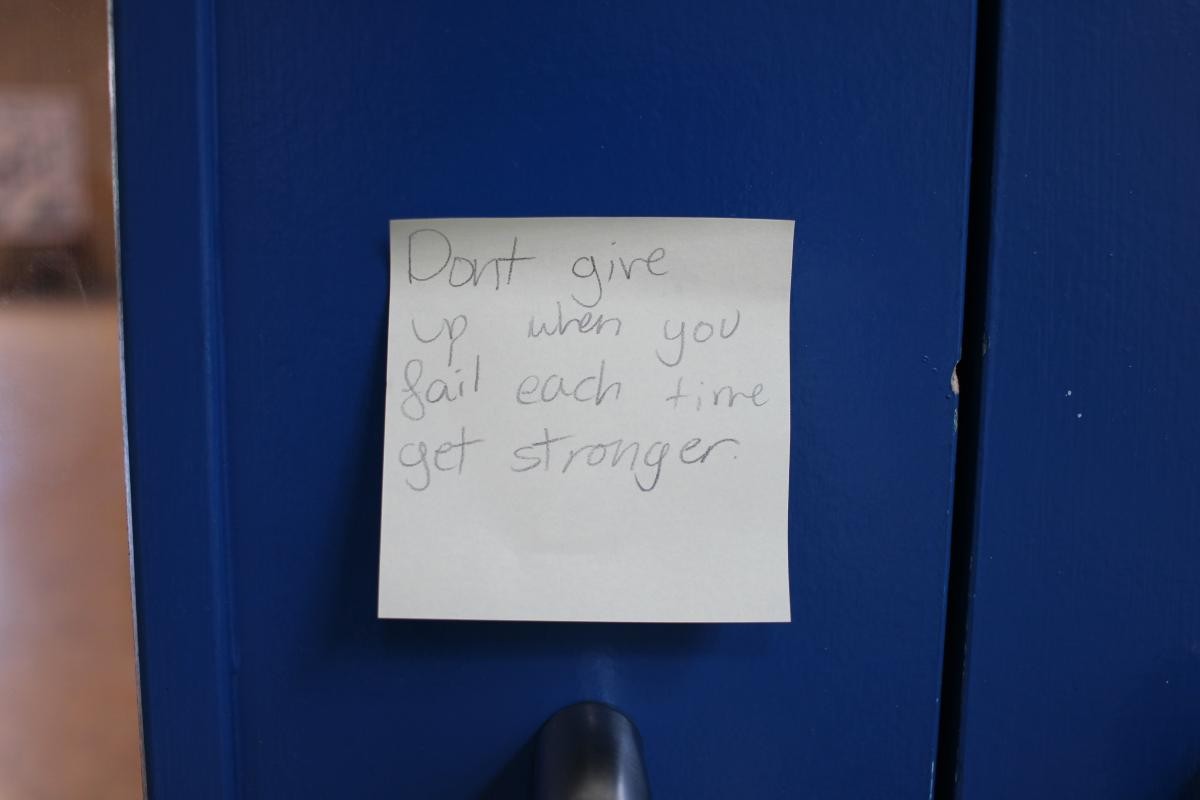 Dont give
up when you
fail each time
get stronger.